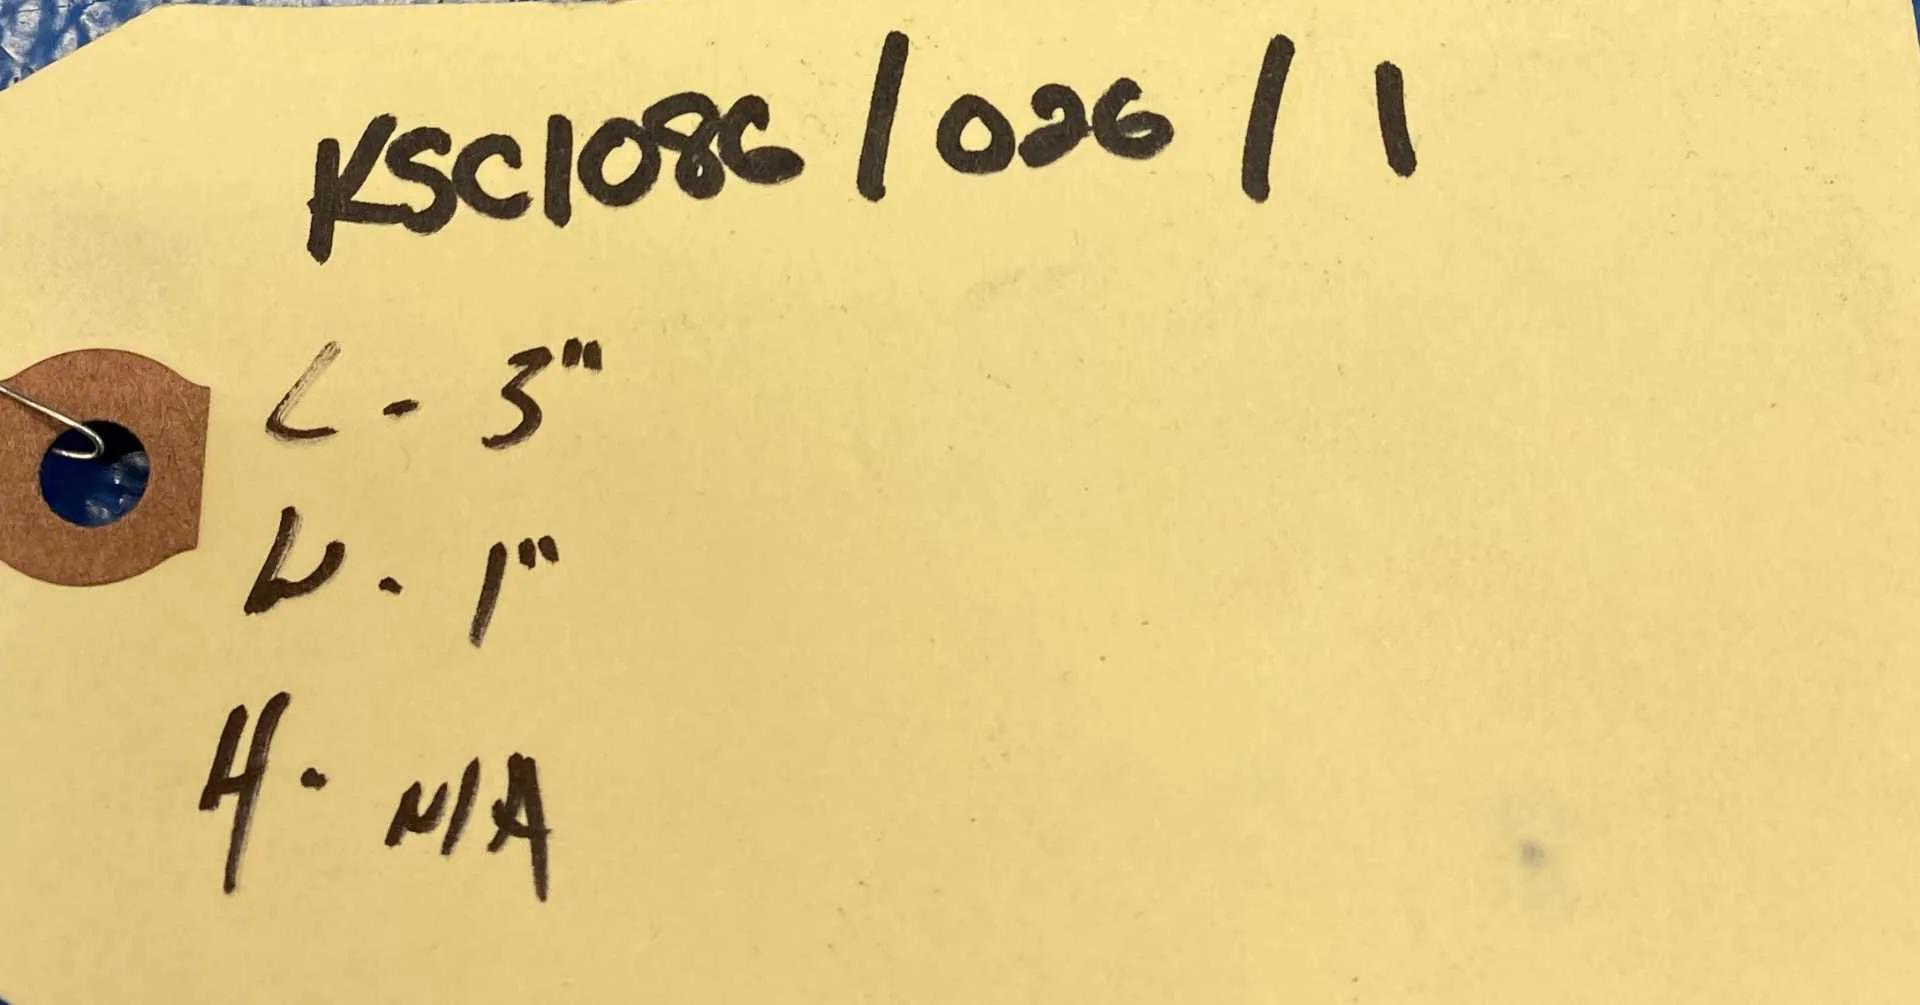 KSC1086 / 026 / 1
L - 3"
W - 1"
H - N/A